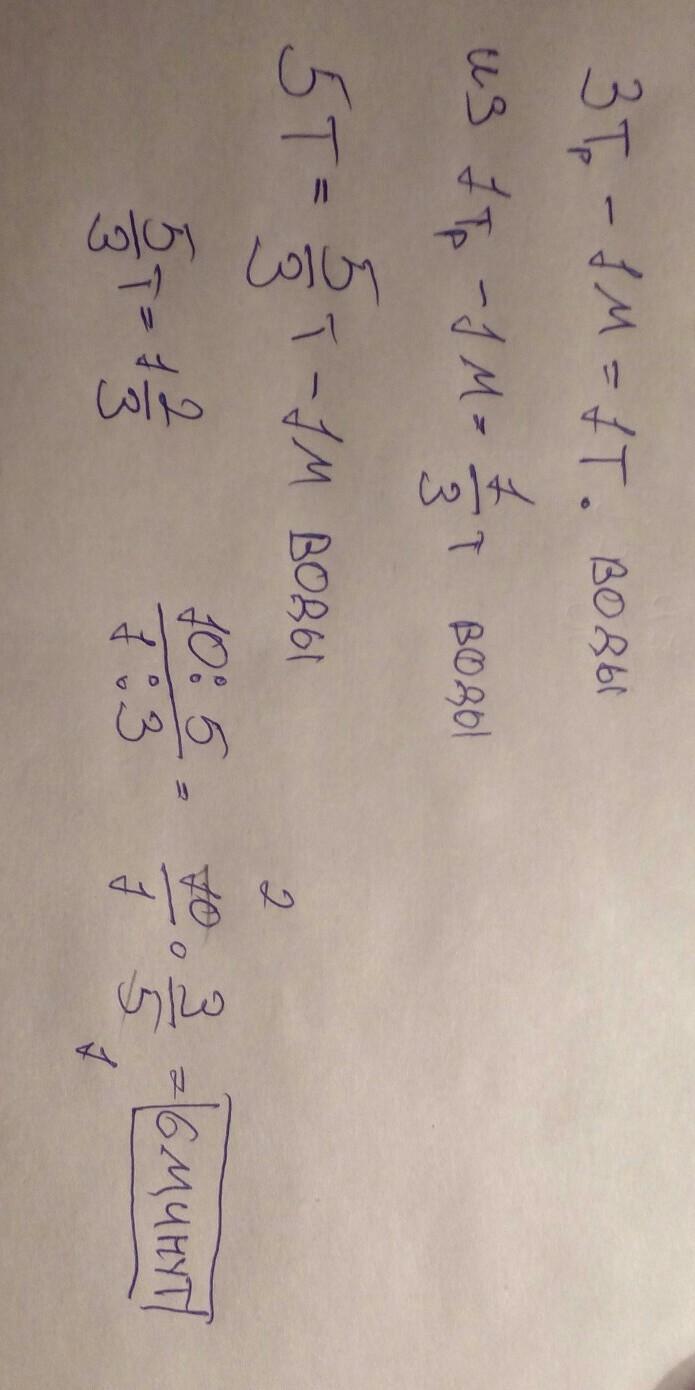 3Тр - 1м = 1Т. воды
из 1Тр - 1м = 1/3 т воды
5Т = 5/3 т - 1м воды
5/3 т = 1 2/3
10/1 : 5/3 = 10/1 · 3/5 = 6 минут
2
1